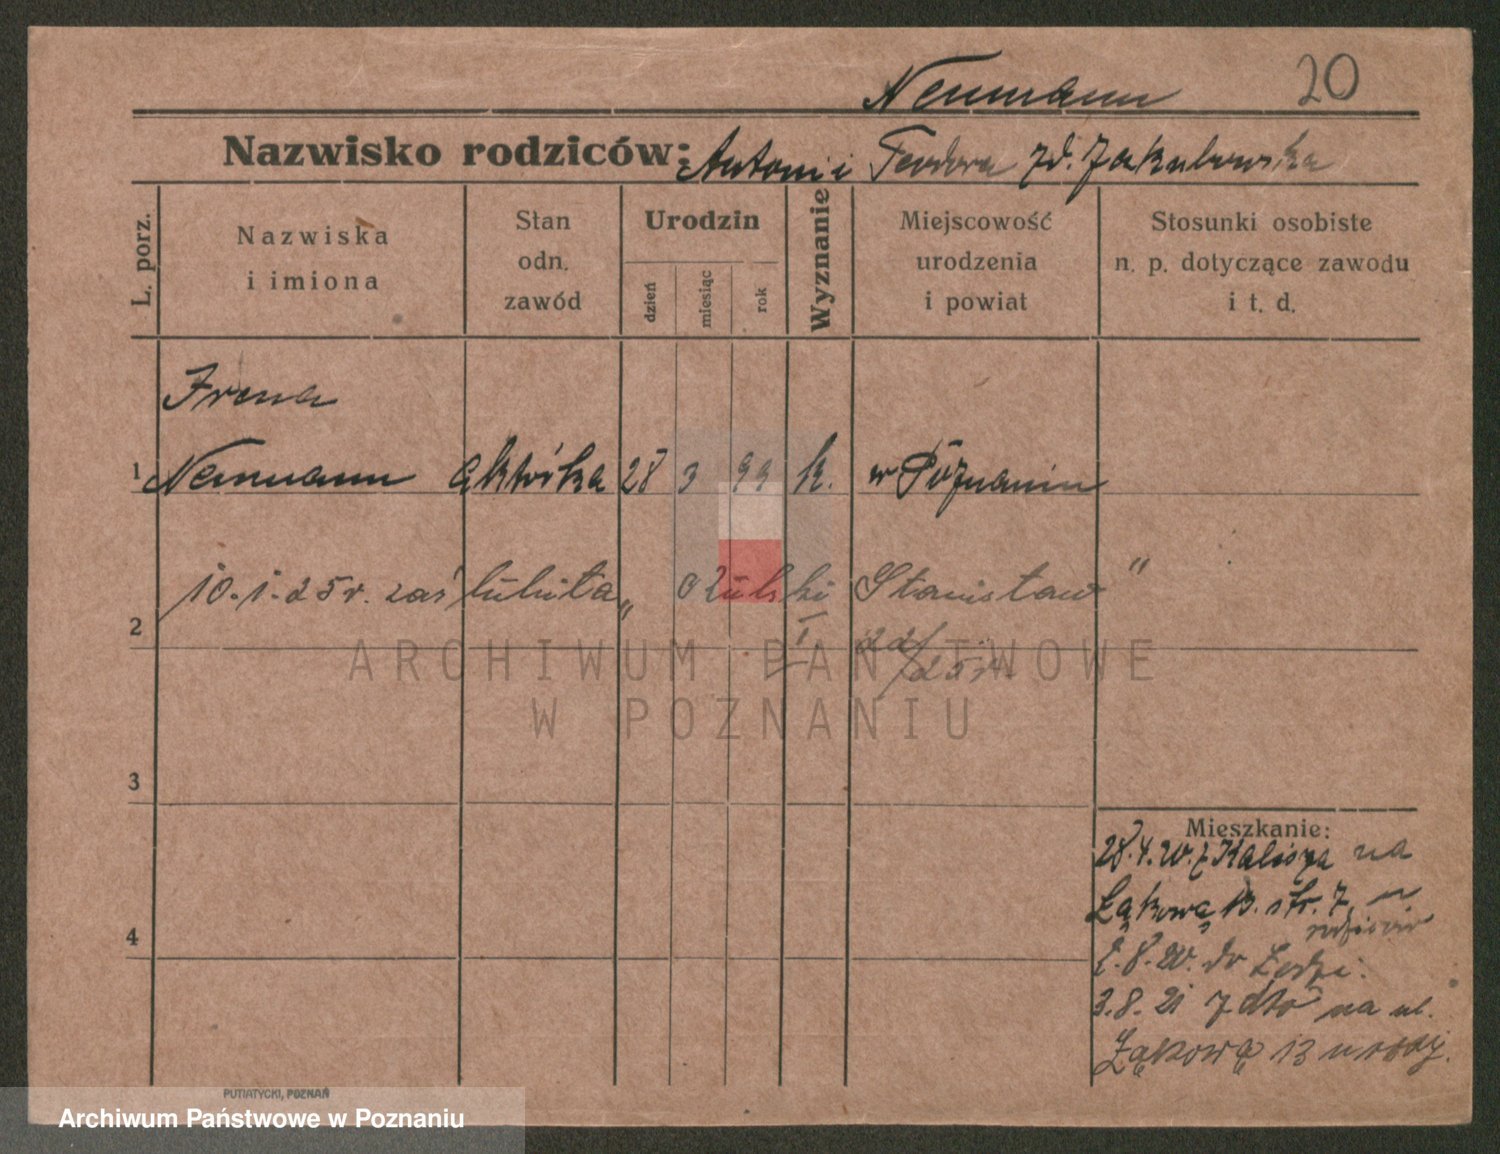 Neumann 20
Nazwisko rodziców: Antoni i Teodora zd. Jakubowska
L. porz.
Nazwiska
i imiona
Stan
odn.
zawód
Urodzin
dzień
miesiąc
rok
Wyznanie
Miejscowość
urodzenia
i powiat
Stosunki osobiste
n. p. dotyczące zawodu
i t. d.
Irena
1 Neumann aktórka 28 3 99 k. w Poznaniu
10.1.25r. zaś lubiła „ Stanisław "
I 22/25r.
2
3
4
Mieszkanie:
28.4.20. z Kalisza na
Łąkową 13. str. 7, u
rodziców
8.20. do Łodzi.
3.8.21 z dto na ul.
Łąkową 13 u rodz.
ARCHIWUM PAŃSTWOWE
W POZNANIU
PUTIATYCKI, POZNAŃ
Archiwum Państwowe w Poznaniu